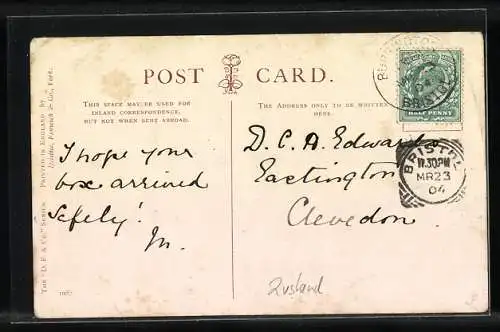 POST CARD.
THIS SPACE MAY BE USED FOR
INLAND CORRESPONDENCE,
BUT NOT WHEN SENT ABROAD.
THE ADDRESS ONLY TO BE WRITTEN
HERE.
I hope your
box arrived
safely!
D. C. A. Edwards
Eastington
Clevedon.
HALF PENNY
BRISTOL
BRISTOL
11.30PM
MR23
04
THE "D. F. & Co." SERIES. PRINTED IN ENGLAND BY